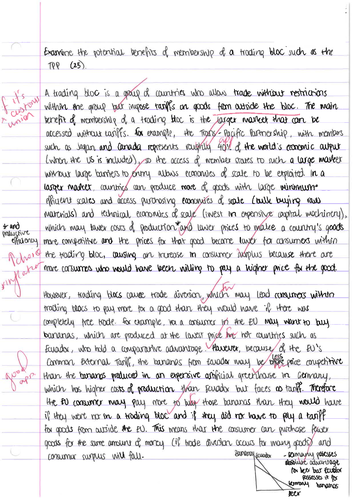 Examine the potential benefits of membership of a trading bloc such as the
TPP (25)
A trading bloc is a group of countries who allow trade without restrictions
within the group but impose tariffs on goods from outside the bloc. The main
benefit of membership of a trading bloc is the larger market that can be
accessed without tariffs. For example, the Trans-Pacific Partnership, with members
such as Japan and Canada represents roughly 40% of the world's economic output
(when the US is included), so the access of member states to such a large market
without large barriers to entry allows economies of scale to be exploited. In a
larger market, countries can produce more of goods with large minimum
efficient scales and access purchasing economies of scale (bulk buying raw
materials) and technical economies of scale (invest in expensive capital machinery),
which may lower costs of production and lower prices to make a country's goods
more competitive and the prices for that good become lower for consumers within
the trading bloc, causing an increase in consumer surplus because there are
more consumers who would have been willing to pay a higher price for the good.
However, trading blocs cause trade diversion, which may lead consumers within
trading blocs to pay more for a good than they would have if there was
completely free trade. For example, for a consumer in the EU may want to buy
bananas, which are produced at the lowest price in countries such as
Ecuador, who hold a comparative advantage. However, because of the EU's
Common External Tariff, the bananas from Ecuador may be less price competitive
than the bananas produced in an expensive artificial greenhouse in Germany,
which has higher costs of production than Ecuador but faces no tariff. Therefore
the EU consumer may pay more to buy those bananas than they would have
if they were not in a trading bloc and if they did not have to pay a tariff
for goods from outside the EU. This means that the consumer can purchase fewer
goods for the same amount of money (if trade division occurs for many goods) and
consumer surplus will fall.
it's
a customs
union
productive
efficiency
good
Bananas Ecuador
Germany possesses
absolute advantage
for beer but Ecuador
possesses it for
bananas
Germany
beer